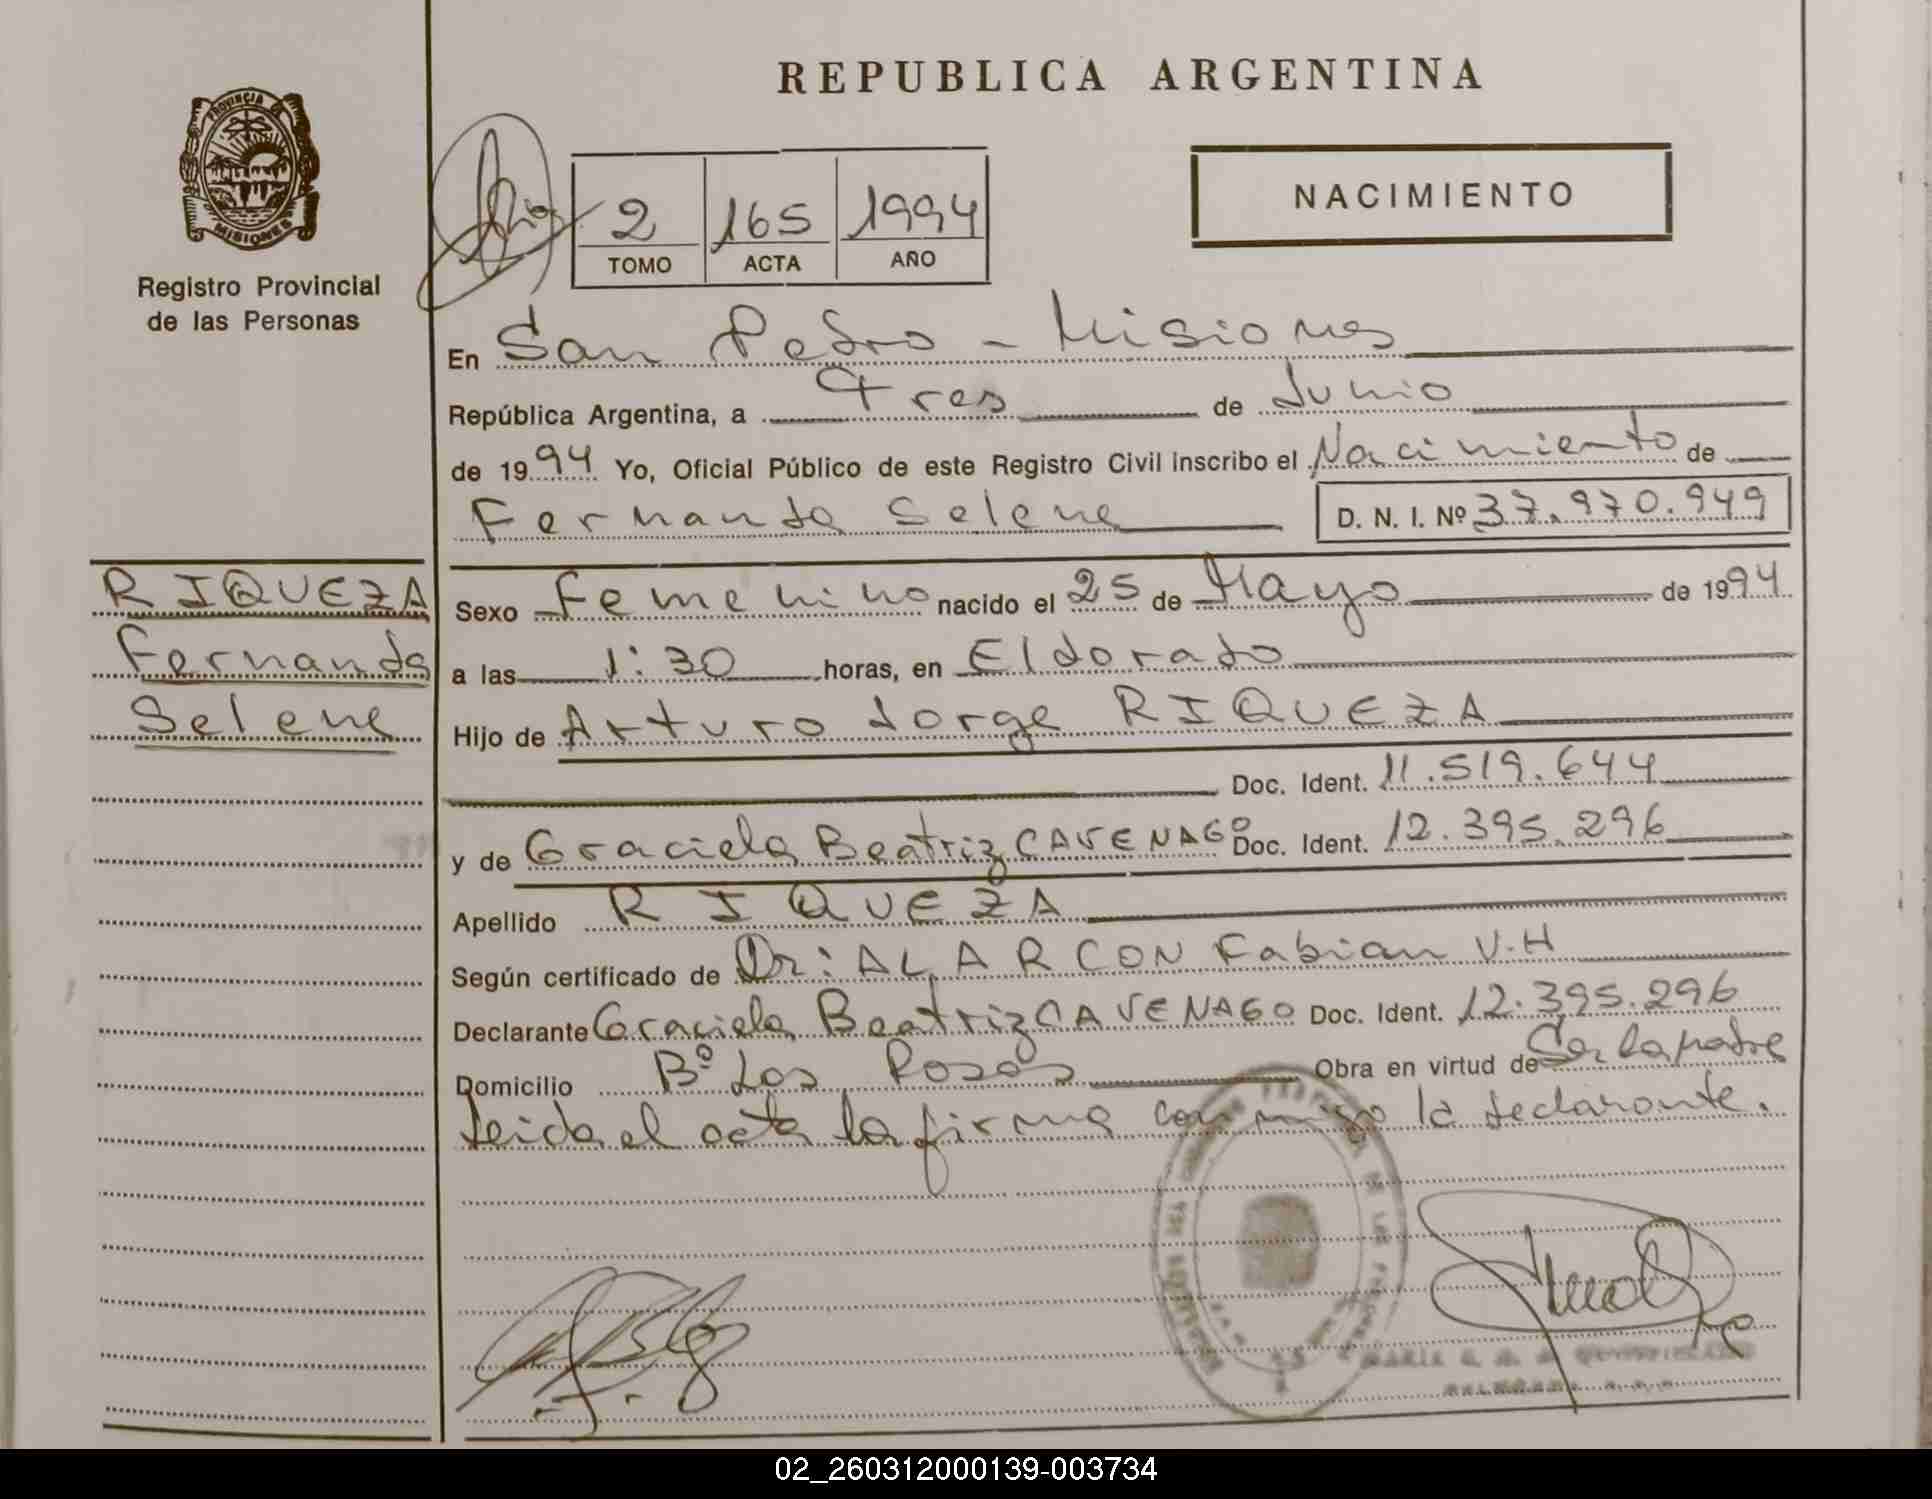 REPUBLICA ARGENTINA
PROVINCIA DE
MISIONES
Registro Provincial
de las Personas
NACIMIENTO
2 165 1994
TOMO ACTA AÑO
En San Pedro - Misiones
República Argentina, a Tres de Junio
de 1994 Yo, Oficial Público de este Registro Civil inscribo el Nacimiento de
Fernanda Selene D. N. I. Nº 37.970.949
RIQUEZA
Fernanda
Selene
Sexo Femenino nacido el 25 de Mayo de 1994
a las 1:30 horas, en Eldorado
Hijo de Arturo Jorge RIQUEZA
Doc. Ident. 11.519.644
y de Graciela Beatriz CAVENAGO Doc. Ident. 12.395.296
Apellido RIQUEZA
Según certificado de Dr: ALARCON Fabian V.H
Declarante Graciela Beatriz CAVENAGO Doc. Ident. 12.395.296
Domicilio Bº Los Rosas Obra en virtud de Ser la madre
Leida el acta la firma conmigo la declarante.
MARIA
02_260312000139-003734